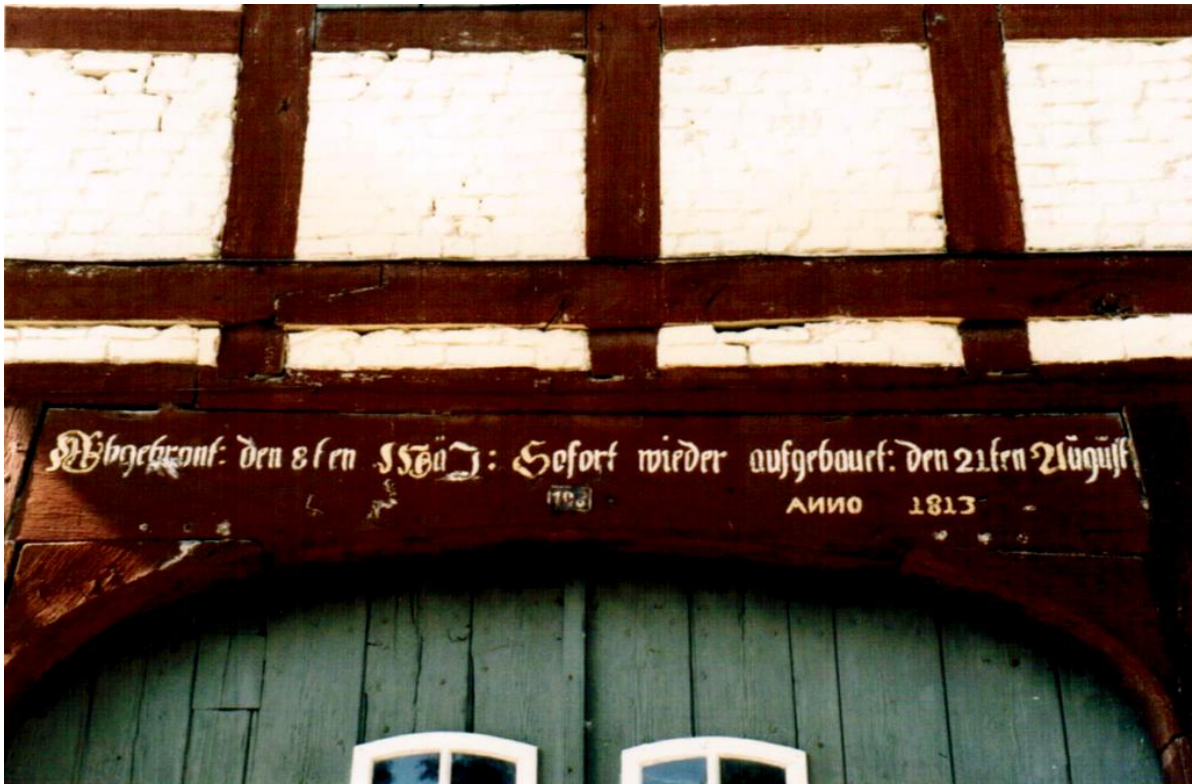 Abgebrant: den 8ten Mäi: Sofort wieder aufgebauet: den 21ten August
ANNO 1813